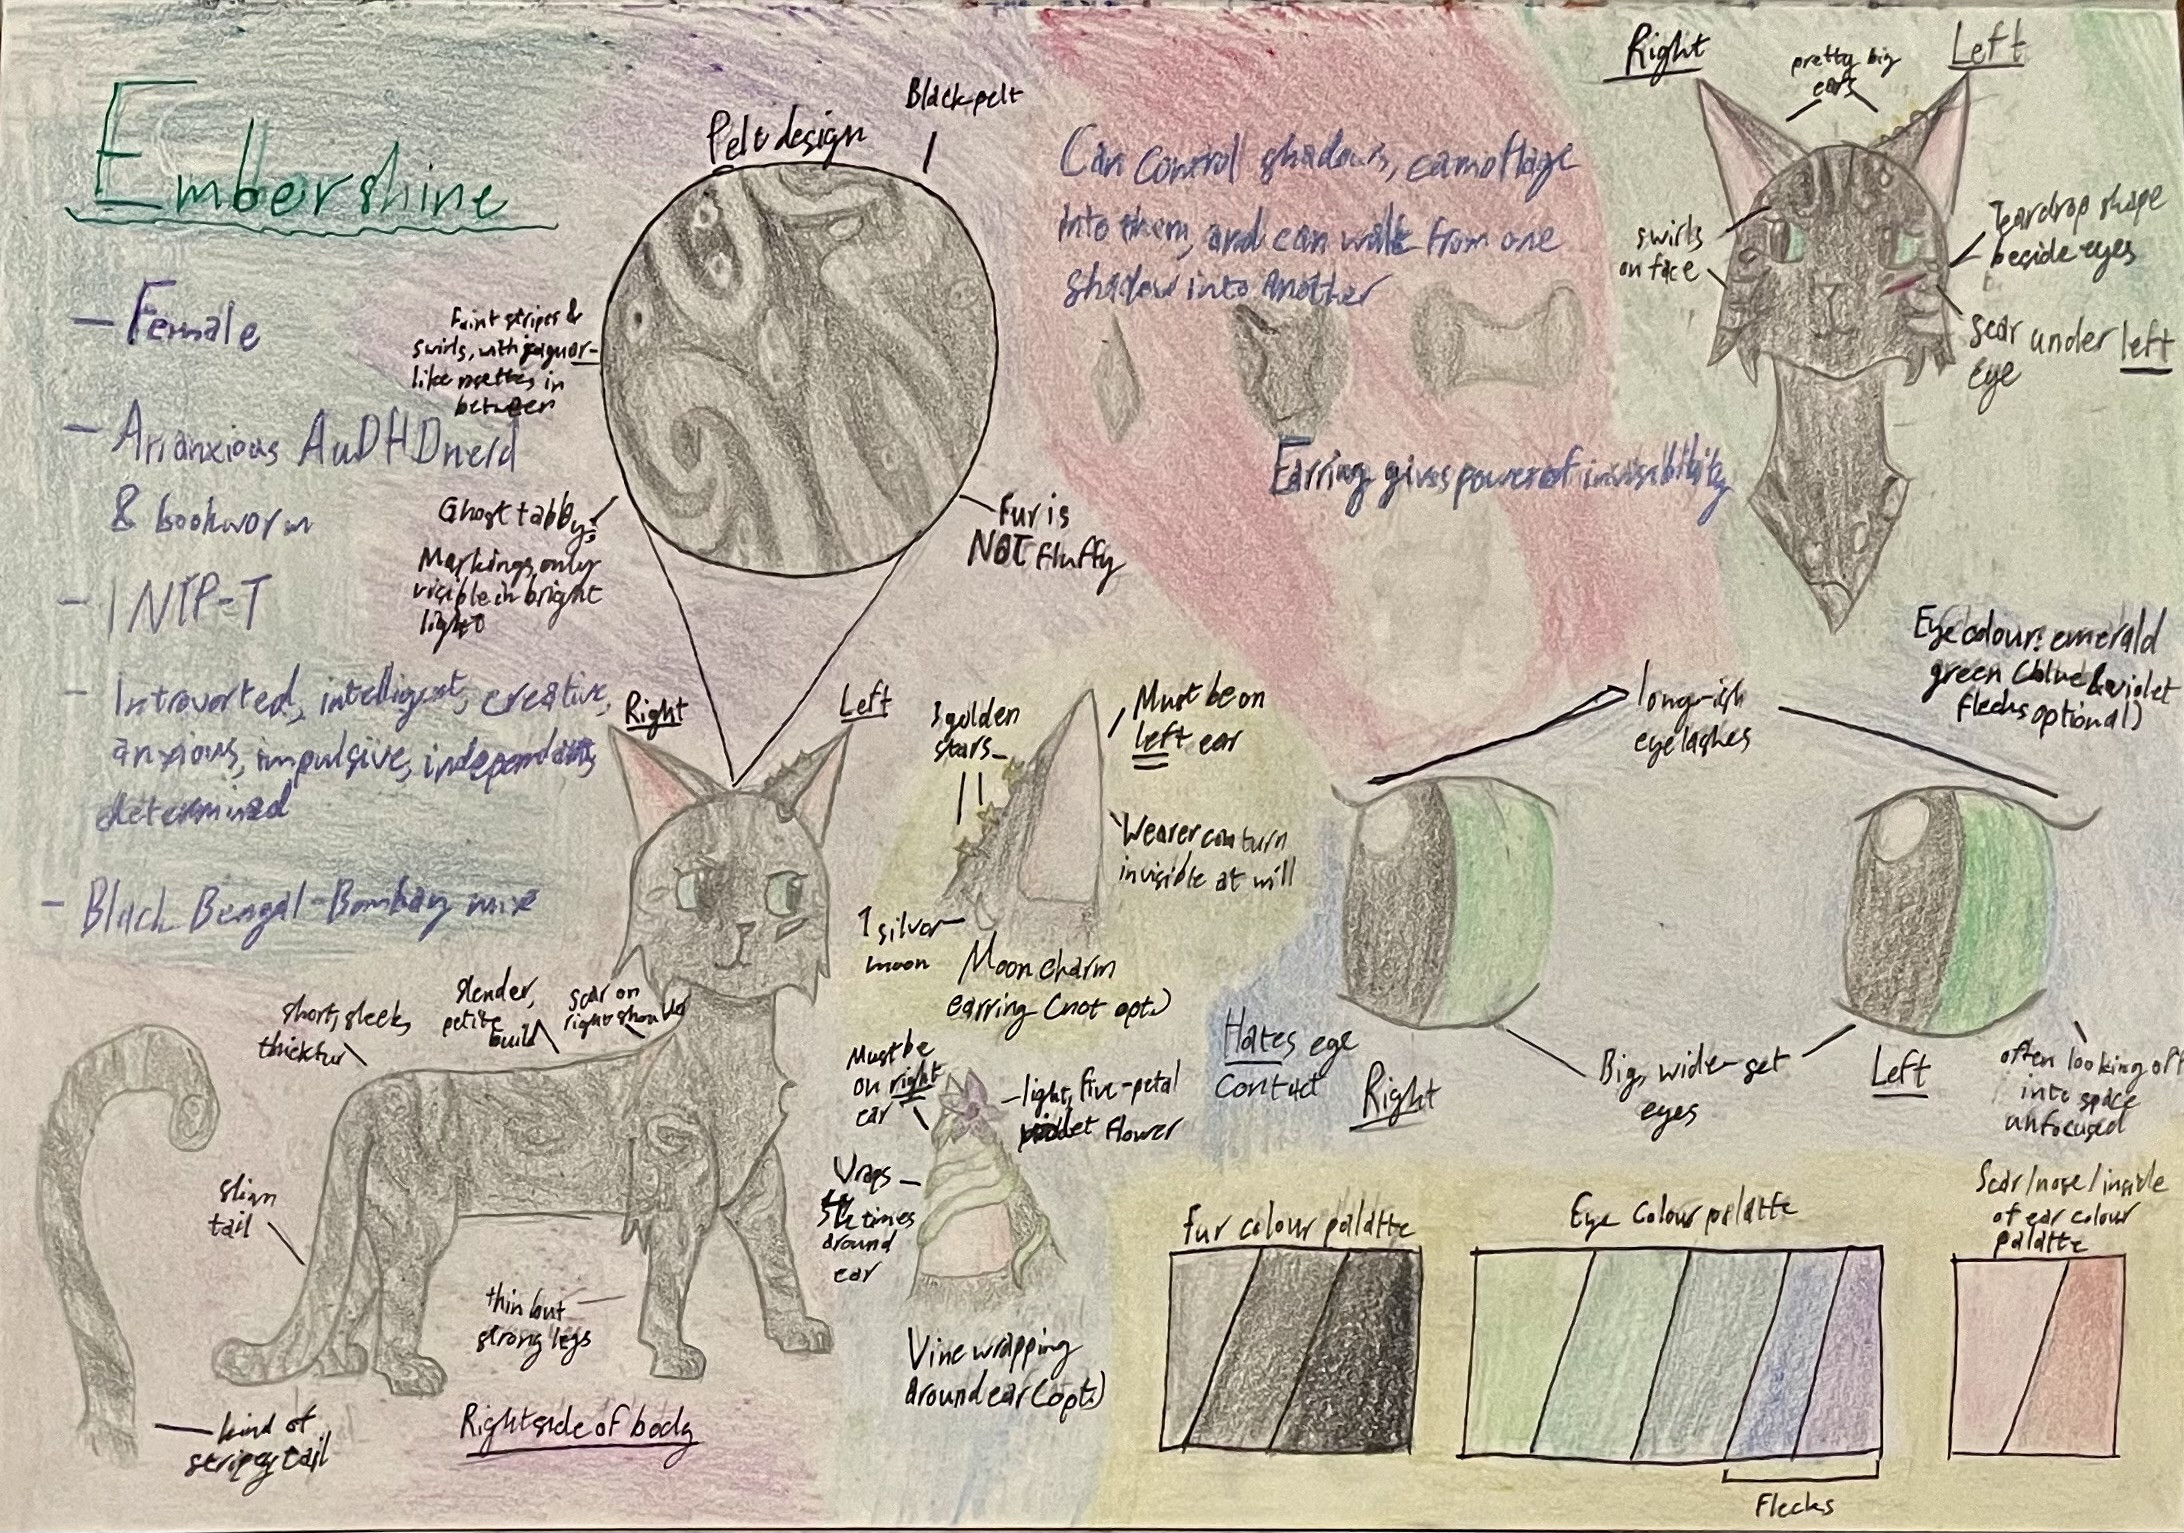 Embershine
- Female
- An anxious AuDHD nerd
& bookworm
- INTP-T
- Introverted, intelligent, creative,
anxious, impulsive, independent,
determined
- Black Bengal-Bombay mix
Pelt design
Black pelt
Faint stripes &
swirls, with jaguar-
like rosettes in
between
Ghost tabby;
Markings only
visible in bright
light
Fur is
NOT fluffy
Can control shadows, camoflage
into them, and can walk from one
shadow into another
Earring gives power of invisibility
Right
Left
pretty big
ears
swirls
on face
Teardrop shape
beside eyes
scar under left
eye
Eye colour: emerald
green (blue & violet
flecks optional)
long-ish
eyelashes
Hates eye
contact
Right
Big, wide-set
eyes
Left
often looking off
into space
unfocused
Right
Left
3 golden
stars
Must be on
left ear
Wearer can turn
invisible at will
1 silver
moon
Moon charm
earring (not opt.)
short, sleek,
thick fur
slender,
petite
build
scar on
right shoulder
Must be
on right
ear
light, five-petal
violet flower
Wraps
times
around
ear
Vine wrapping
around ear (opt.)
slim
tail
thin but
strong legs
kind of
stripey tail
Right side of body
Fur colour palatte
Eye Colour palatte
Flecks
Scar/nose/inside
of ear colour
palatte